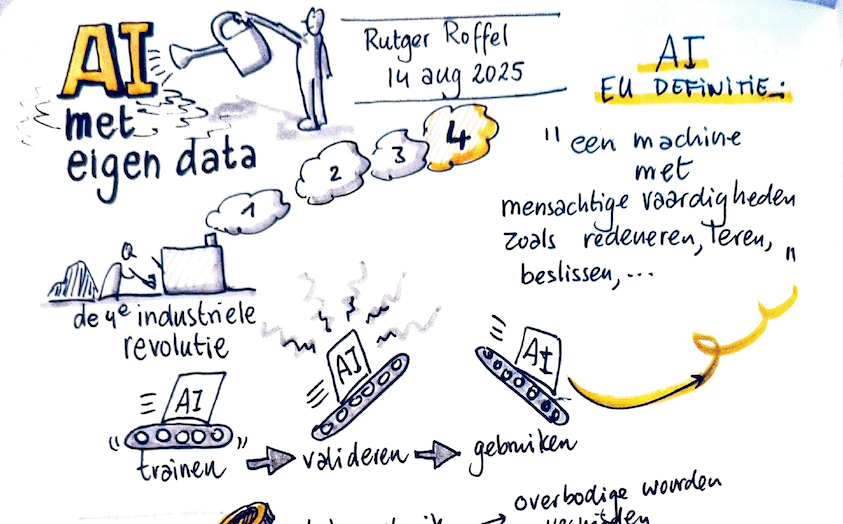 AI
met
eigen data
Rutger Roffel
14 aug 2025
AI
EU DEFINITIE:
"een machine
met
mensachtige vaardigheden
zoals redeneren, leren,
beslissen,..."
1
2
3
4
de 4e industriele
revolutie
AI
AI
AI
trainen
valideren
gebruiken
overbodige woorden